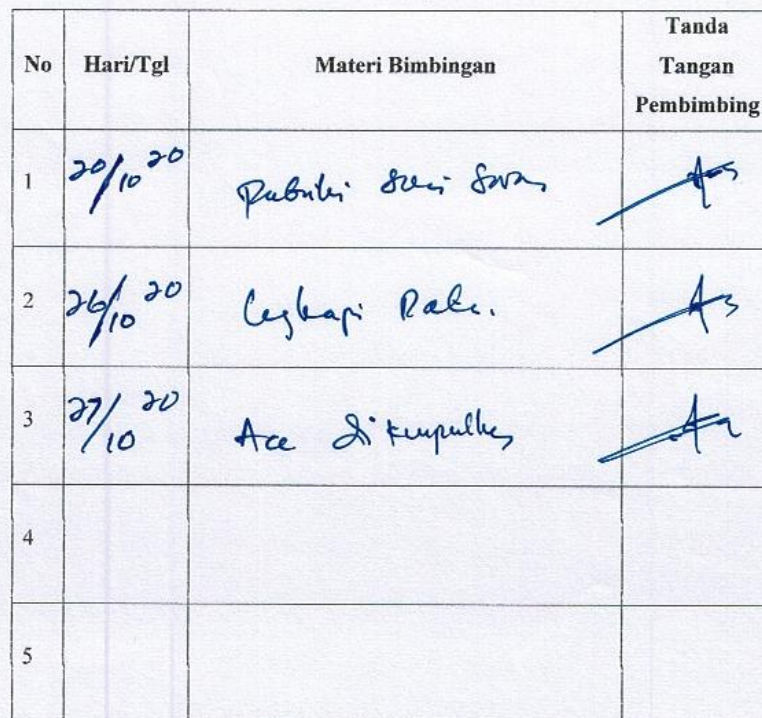 No Hari/Tgl Materi Bimbingan Tanda Tangan Pembimbing
1 20/10 20 Perbaiki sesuai saran
2 26/10 20 Lengkapi Data.
3 27/10 20 Acc di kumpulkan
4
5